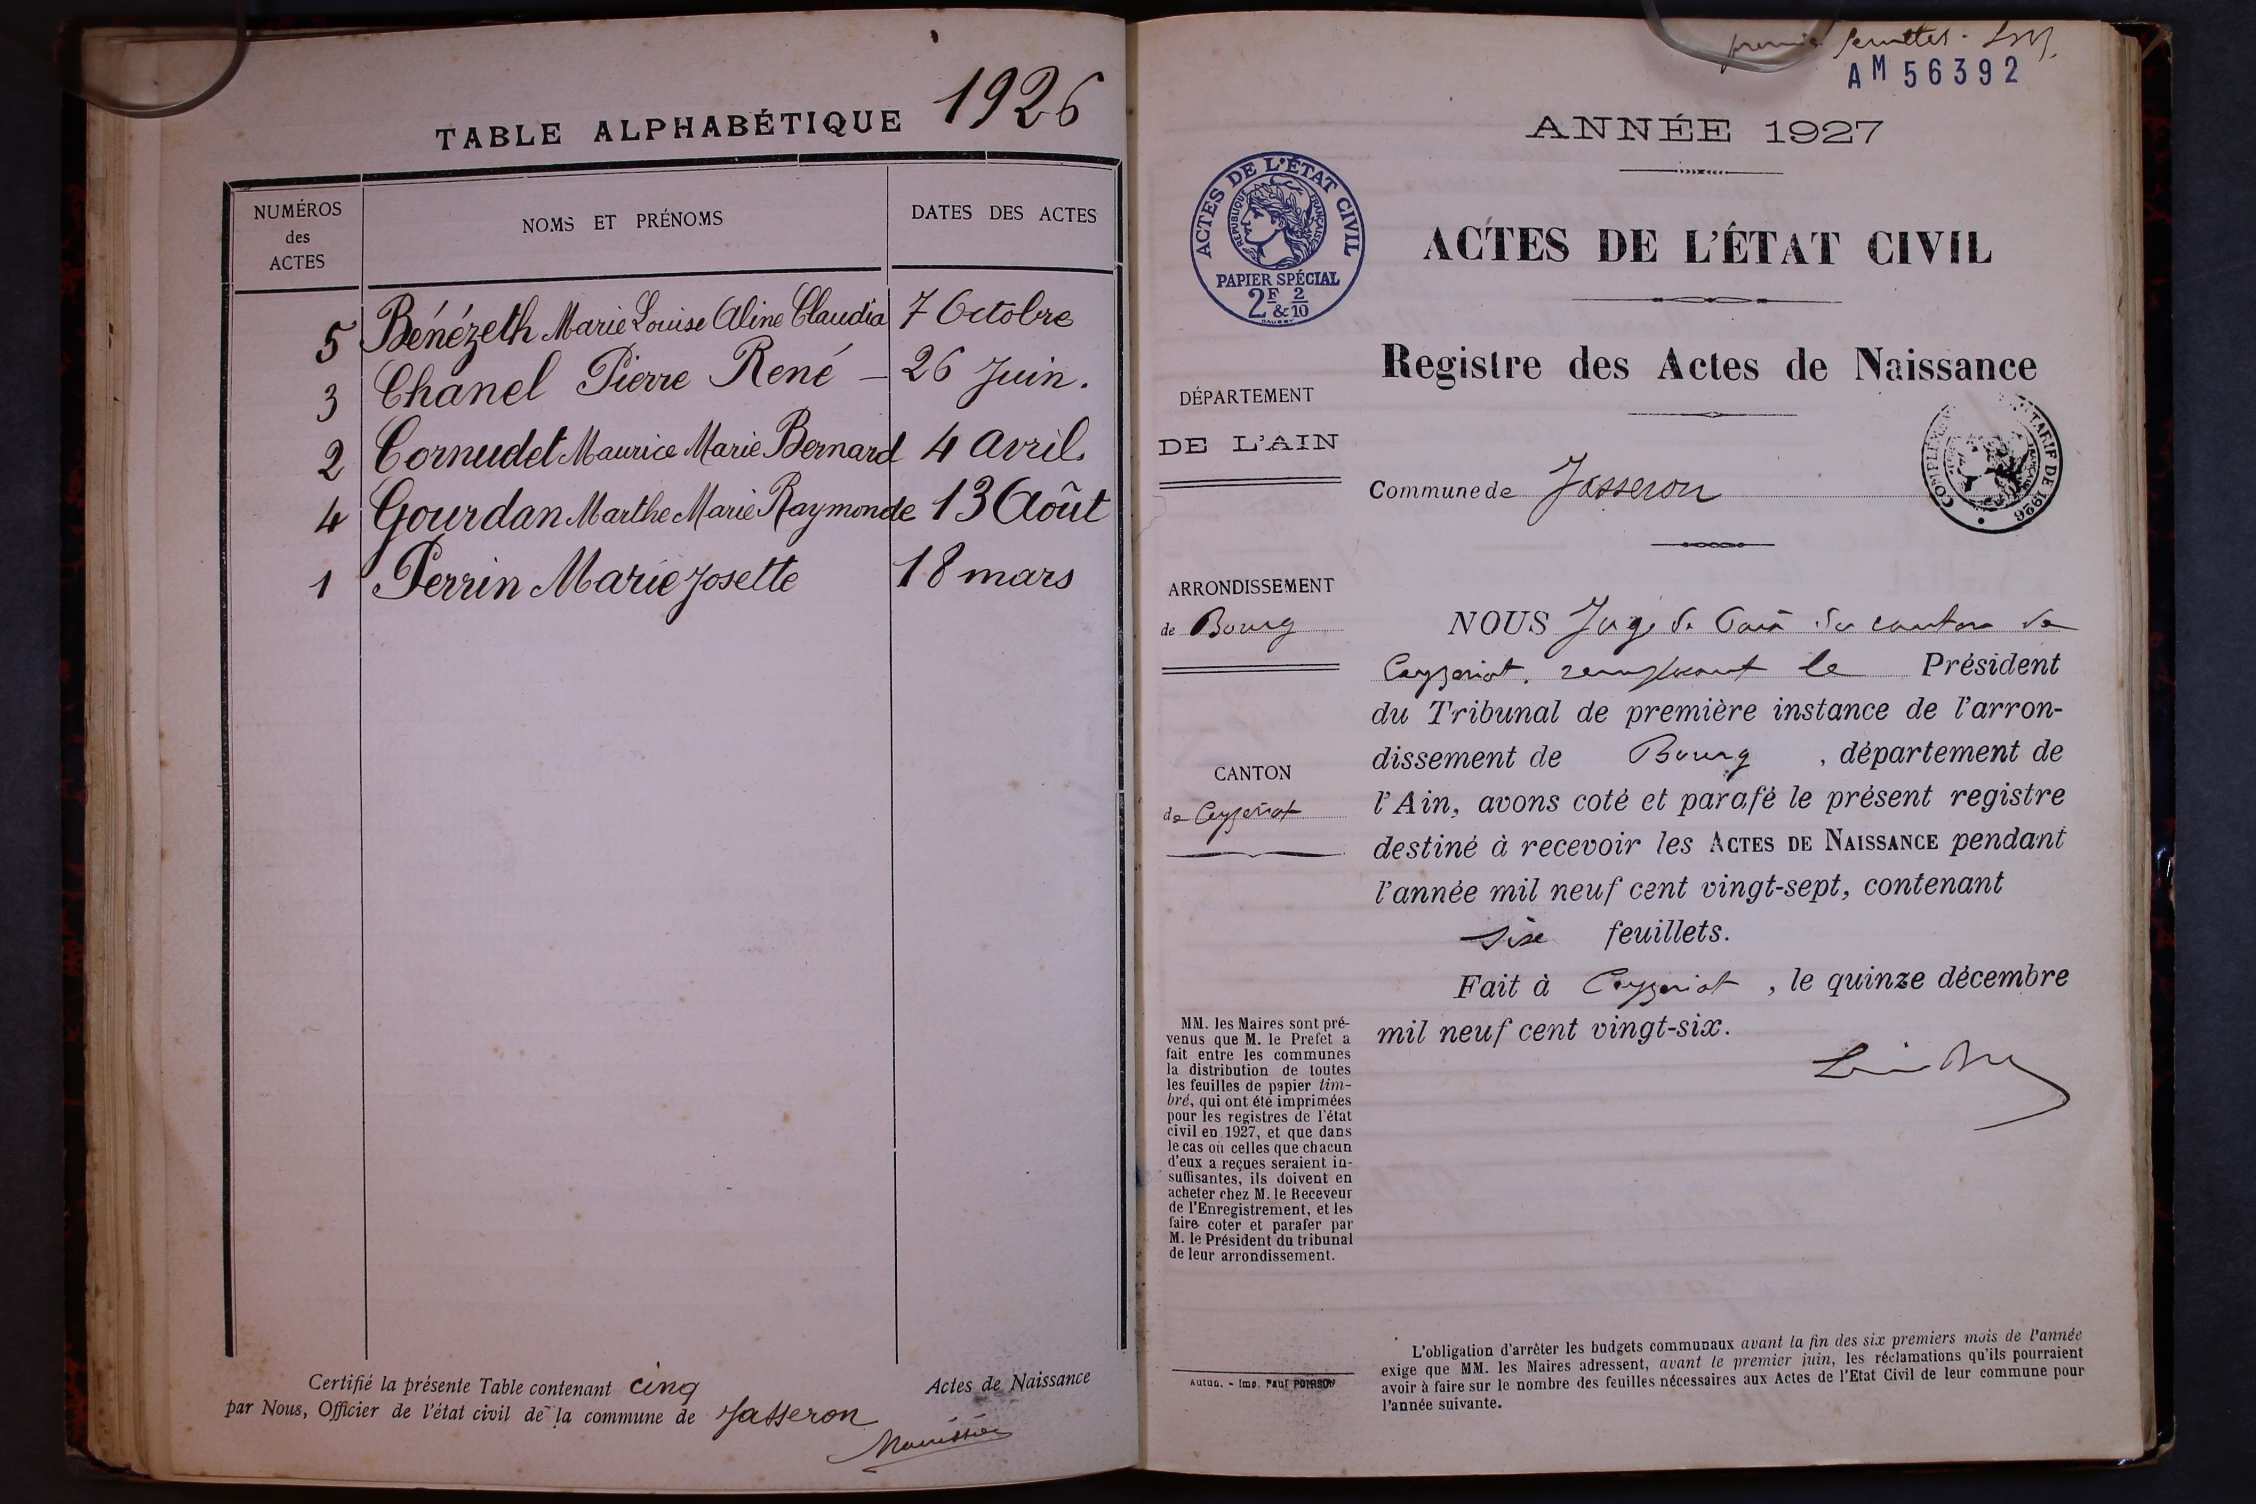 TABLE ALPHABÉTIQUE 1926
NUMÉROS
des
ACTES
NOMS ET PRÉNOMS
DATES DES ACTES
5 Bénézeth Marie Louise Aline Claudia 7 Octobre
3 Chanel Pierre René — 26 Juin.
2 Cornudet Maurice Marie Bernard 4 avril
4 Gourdan Marthe Marie Raymonde 13 Août
1 Perrin Marie Josette 18 mars
Certifié la présente Table contenant cinq Actes de Naissance
par Nous, Officier de l'état civil de la commune de Jasseron
premier feuillet.
AM 56392
ANNÉE 1927
ACTES DE L'ÉTAT CIVIL
RÉPUBLIQUE FRANÇAISE
PAPIER SPÉCIAL
2F & 2/10
ACTES DE L'ÉTAT CIVIL
Registre des Actes de Naissance
DÉPARTEMENT
DE L'AIN
TARIF DE 1926
Commune de Jasseron
ARRONDISSEMENT
de Bourg
CANTON
de Ceyzériat
NOUS Juge de Paix du canton de
Ceyzeriat, remplaçant le Président
du Tribunal de première instance de l'arron-
dissement de Bourg, département de
l'Ain, avons coté et parafé le présent registre
destiné à recevoir les ACTES DE NAISSANCE pendant
l'année mil neuf cent vingt-sept, contenant
six feuillets.
Fait à Ceyzeriat, le quinze décembre
mil neuf cent vingt-six.
MM. les Maires sont pré-
venus que M. le Prefet a
fait entre les communes
la distribution de toutes
les feuilles de papier tim-
bré, qui ont été imprimées
pour les registres de l'état
civil en 1927, et que dans
le cas où celles que chacun
d'eux a reçues seraient in-
suffisantes, ils doivent en
acheter chez M. le Receveur
de l'Enregistrement, et les
faire coter et parafer par
M. le Président du tribunal
de leur arrondissement.
Autun. - Imp. Paul
L'obligation d'arrêter les budgets communaux avant la fin des six premiers mois de l'année
exige que MM. les Maires adressent, avant le premier juin, les réclamations qu'ils pourraient
avoir à faire sur le nombre des feuilles nécessaires aux Actes de l'Etat Civil de leur commune pour
l'année suivante.